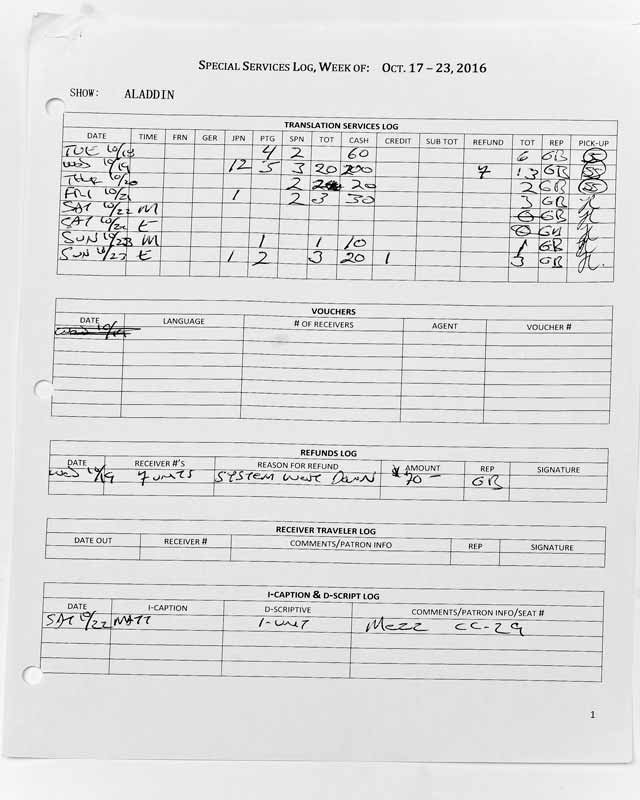 SPECIAL SERVICES LOG, WEEK OF: OCT. 17 – 23, 2016
SHOW: ALADDIN
TRANSLATION SERVICES LOG
DATE TIME FRN GER JPN PTG SPN TOT CASH CREDIT SUB TOT REFUND TOT REP PICK-UP
TUE 10/18 4 2 60 6 GB
WED 10/19 12 5 3 20 200 7 13 GB SS
THUR 10/20 2 20 2 GB SS
FRI 10/21 1 2 3 30 3 GB
SAT 10/22 M 0 GB
SAT 10/22 E 0 GB
SUN 10/23 M 1 1 10 1 GB
SUN 10/23 E 1 2 3 20 1 3 GB
VOUCHERS
DATE LANGUAGE # OF RECEIVERS AGENT VOUCHER #
WED 10/19
REFUNDS LOG
DATE RECEIVER #'S REASON FOR REFUND AMOUNT REP SIGNATURE
WED 10/19 7 UNITS SYSTEM WENT DOWN $70- GB
RECEIVER TRAVELER LOG
DATE OUT RECEIVER # COMMENTS/PATRON INFO REP SIGNATURE
I-CAPTION & D-SCRIPT LOG
DATE I-CAPTION D-SCRIPTIVE COMMENTS/PATRON INFO/SEAT #
SAT 10/22 MATT 1-UNIT MEZZ CC-29
1